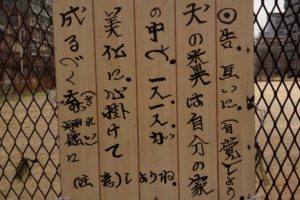 ◎告 互いに(自覚)しよう
犬の糞は自分の家
の中で、一人一人が
美化に心掛けて
成るべく奇麗に(きれい)
(注意)しようね。